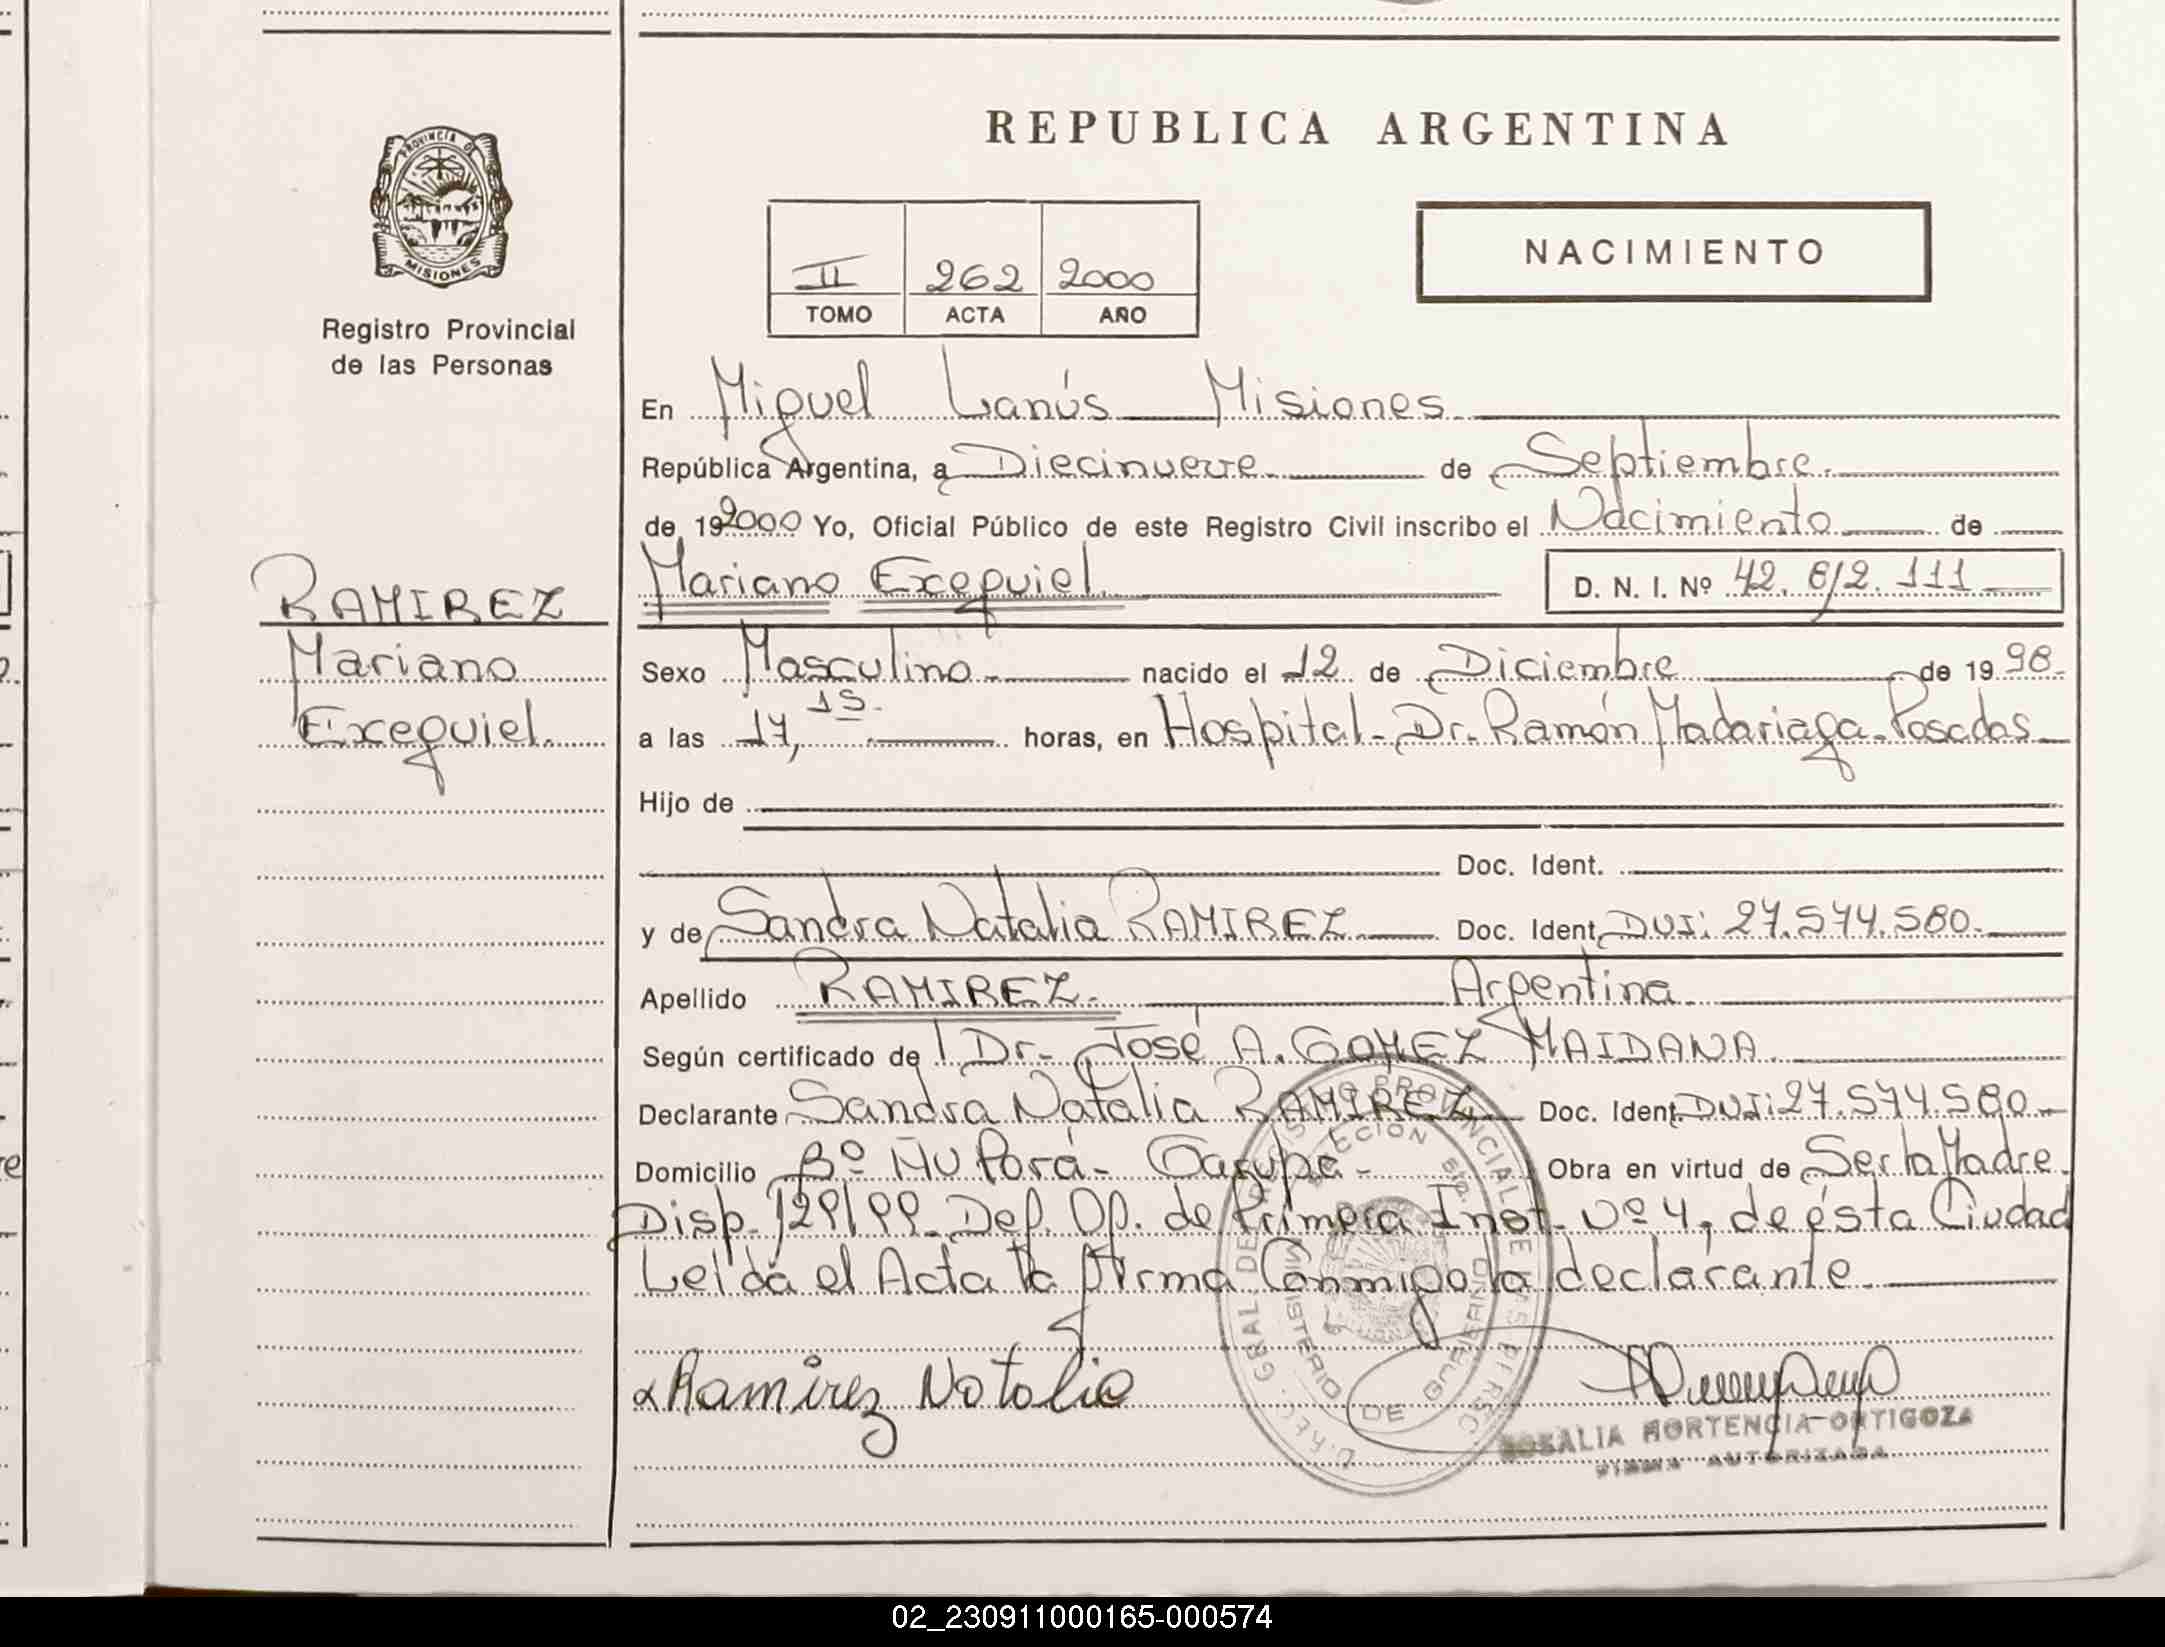 REPUBLICA ARGENTINA
PROVINCIA DE
MISIONES
Registro Provincial
de las Personas
II 262 2000
TOMO ACTA AÑO
NACIMIENTO
RAMIREZ
Mariano
Exequiel.
En Miguel Lanús Misiones
República Argentina, a Diecinueve de Septiembre.
de 19 2000 Yo, Oficial Público de este Registro Civil inscribo el Nacimiento de
Mariano Exequiel. D. N. I. Nº 42. 612. 111
Sexo Masculino nacido el 12 de Diciembre de 19 98.
a las 17, 15. horas, en Hospital - Dr. Ramón Madariaga - Posadas
Hijo de
Doc. Ident.
y de Sandra Natalia RAMIREZ Doc. Ident. DNI: 27.574.580.
Apellido RAMIREZ. Argentina
Según certificado de Dr. José A. GOMEZ MAIDANA
Declarante Sandra Natalia RAMIREZ Doc. Ident. DNI: 27.574.580
Domicilio Bº Ñu Porá - Garupa - Obra en virtud de Ser la Madre.
Disp. 129/99. Def. Of. de Primera Inst. Nº 4, de ésta Ciudad
Leída el Acta la firma Conmigo la declarante.
Ramirez Natalia
ROSALIA HORTENCIA ORTIGOZA
FIRMA AUTORIZADA
MINISTERIO DE GOBIERNO
02_230911000165-000574